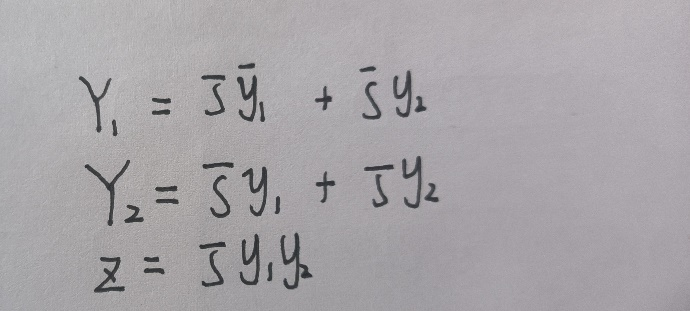 Y₁ = s̅ y̅₁ + s̅ y₂
Y₂ = s̅ y₁ + s̅ y₂
z = s̅ y₁ y₂